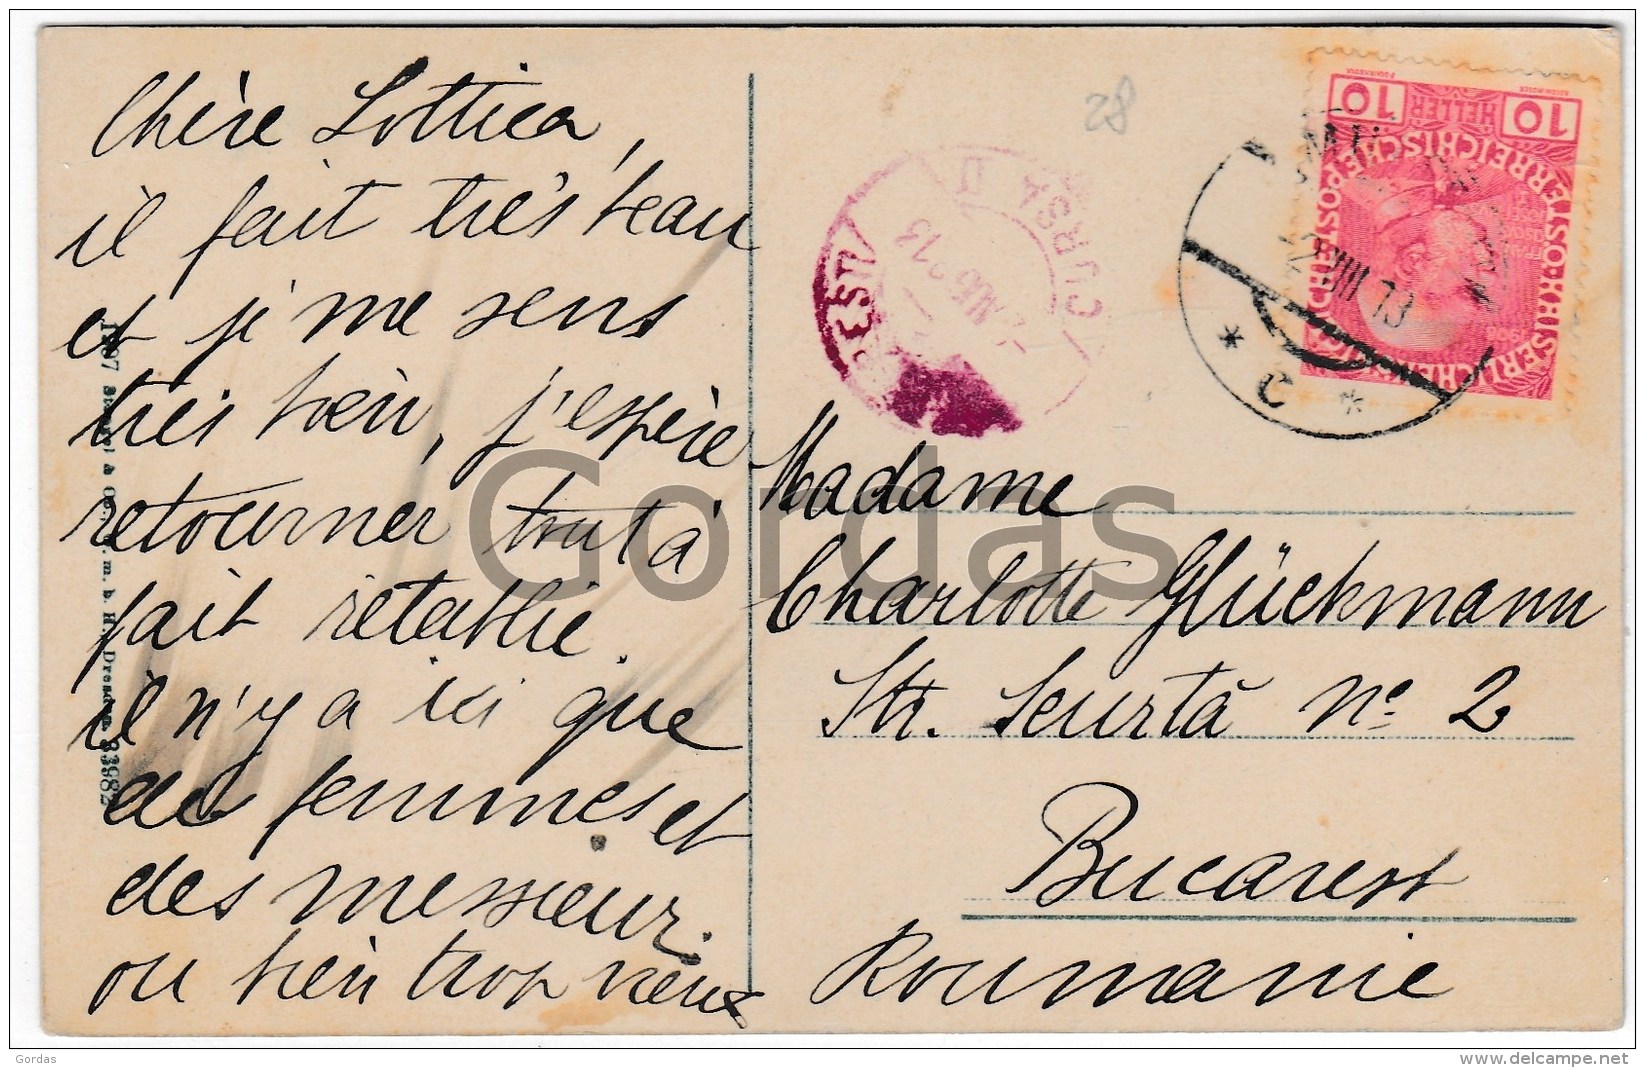 Chère Lottica,
il fait très beau
et je me sens
très bien, j'espère
retourner tout à
fait rétablie.
il n'y a ici que
des femmes et
des messieurs.
ou bien trop vieux
1907 Stengel & Co., G. m. b. H., Dresden 33982
28
10 HELLER 10
KAISERLICHE KÖNIGLICHE ÖSTERREICHISCHE POST
CURSA II
AUG 913
VIII 13
* C *
Madame
Charlotte Glückmann
Str. Scurtă no 2
Bucarest
Roumanie
Gordas
Gordas
www.delcampe.net